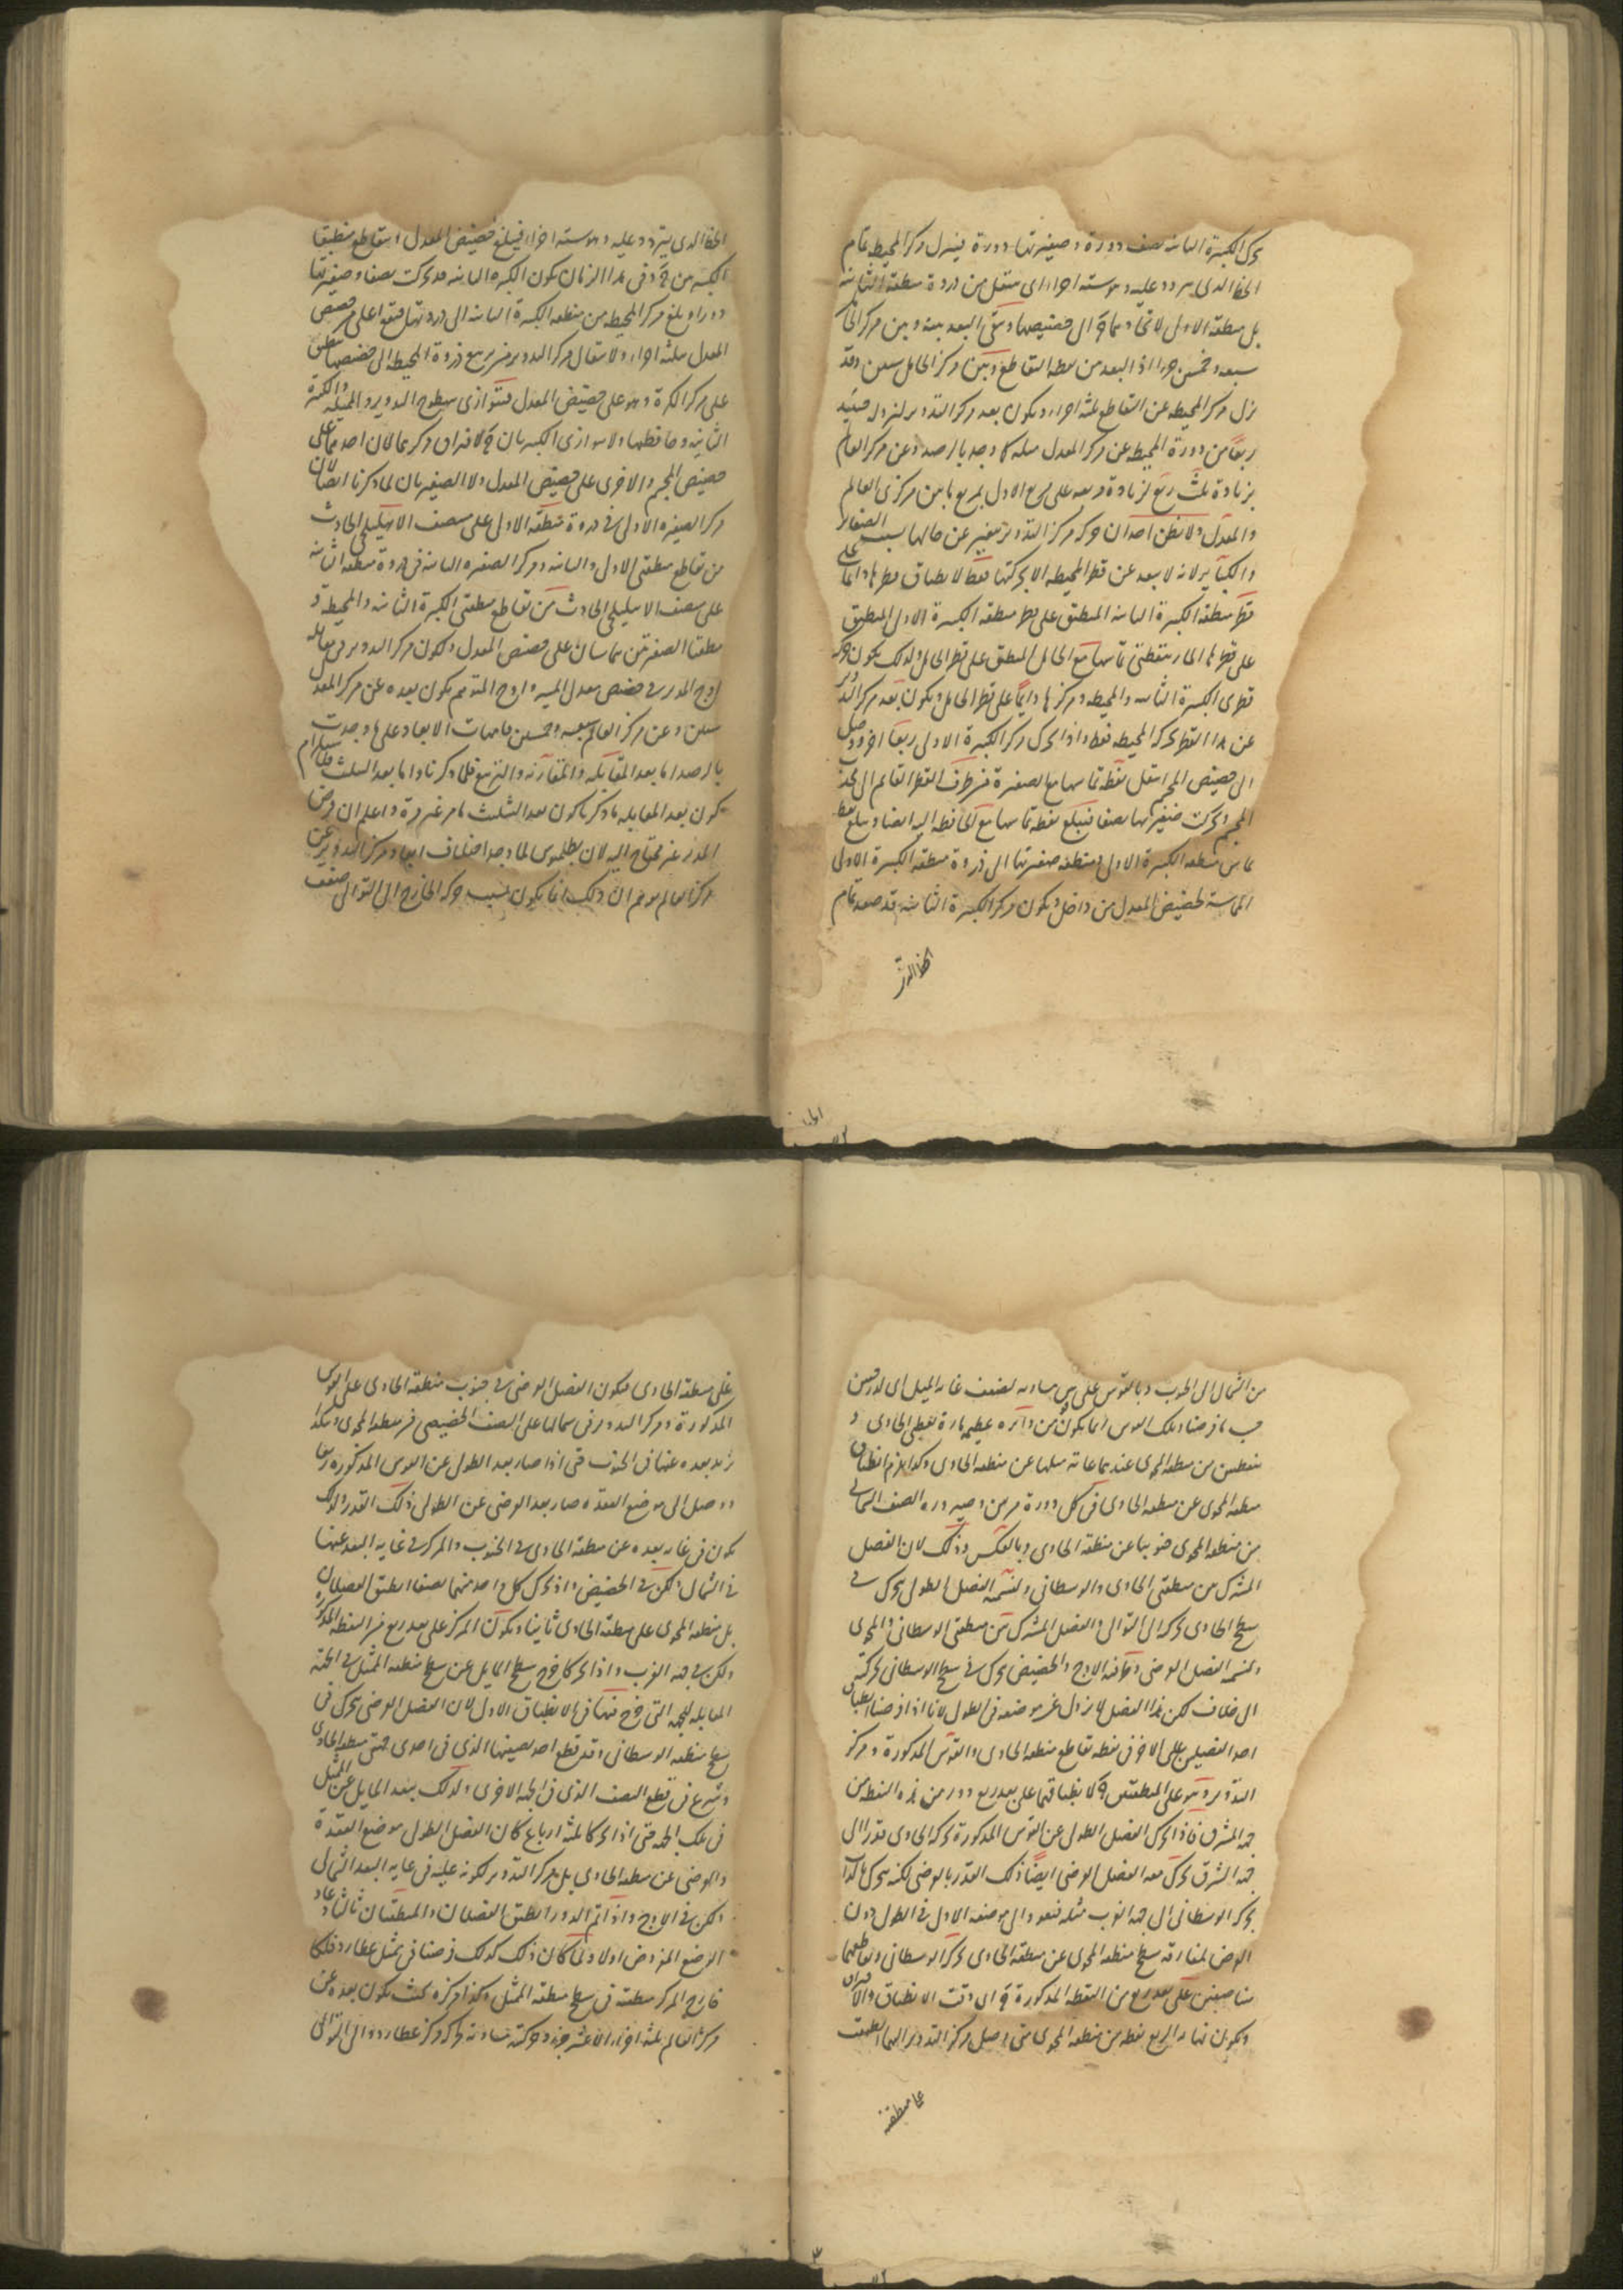 تحرك الكبيرة الثانية نصف دورة وصغيرتها دورة فينزل مركز المحيطة تمام
الخط الذى يتردد عليه وهو ستة اجزاء اى ينتقل من ذروة منطقة الثانية
بل منطقة الاولى لاتحادهما ح الى حضيضها ويبقى البعد بينه وبين مركز
سبعة وخمسين جزءا اذ البعد من نقطة التقاطع وبين مركز الحامل ستين وقد
نزل مركز المحيطة عن التقاطع ثلثة اجزاء ويكون بعد مركز التدوير لنزوله حينئذ
ربعا من دورة المحيطة عن مركز المعدل مثله كما وجد بالرصد وعن مركز العالم
بزيادة ثلث ربع لزيادة مربعه على مربع الاول بمربع ما بين مركزى العالم
والمعدل ولا يظن احد ان حركة مركز التدوير تتغير عن حالها بسبب الصغائر
والكبائر لانه لا يبعد عن قطر المحيطة الا بحركتها فقط لانطباق قطرها دائما على
قطر منطقة الكبيرة الثانية المنطبق على قطر منطقة الكبيرة الاولى المنطبق
على قطرها المار بنقطتى تماسها مع الحامل المنطبق على قطر الحامل ولذلك يكون مركز
قطرى الكبيرة الثانية والمحيطة ومركزها دائما على قطر الحامل ويكون بعد مركز التدوير
عن هذا القطر بحركة المحيطة فقط واذا تحرك مركز الكبيرة الاولى ربعا اخر ووصل
الى حضيض المجسم انتقل نقطة تماسها مع الصغيرة من طرف القطر القائم الى
المجسم وتحركت صغيرتها نصفا فيبلغ نقطة تماسها مع الحافظة اليه ايضا ويبلغ نقطة
تماس منطقة الكبيرة الاولى ومنطقة صغيرتها الى ذروة منطقة الكبيرة الاولى
المماسة لحضيض المعدل من داخل ويكون مركز الكبيرة الثانية قد صعد تمام
الخط الذى
الخط الذى يتردد عليه وهو ستة اجزاء فيبلغ حضيض المعدل
الكبيرتين ح وفى هذا الزمان يكون الكبيرة الثانية قد تحركت نصفا وصغيرتها
دورا وبلغ مركز المحيطة من منطقة الكبيرة الثانية الى ذروتها فيقع اعلى من حضيض
المعدل بثلثة اجزاء ولانتقال مركز التدوير من ربع ذروة المحيطة الى حضيضها ينطبق
على مركز الكرة وهو على حضيض المعدل فتتوازى سطوح التدوير والمحيطة والكبيرة
الثانية وحافظها ولا يتوازى الكبيرتان ح لافتراق مركزيهما لان احدهما على
حضيض المجسم والاخرى على حضيض المعدل ولا الصغيرتان لما ذكرنا ايضا لان
مركز الصغيرة الاولى فى ذروة منطقة الاولى على منصف الاهليلجى الحادث
من تقاطع منطقتى الاولى والثانية ومركز الصغيرة الثانية فى ذروة منطقة الثانية
على منصف الاهليلجى الحادث من تقاطع منطقتى الكبيرة الثانية والمحيطة و
منطقتا الصغيرتين تتماسان على حضيض المعدل ولكون مركز التدوير فى مقابلة
اوج المدير فى حضيض معدل المسير واوج المتمم يكون بعده عن مركز المعدل
ستين وعن مركز العالم سبعة وخمسين فامهات الابعاد على ما وجدت
بالرصد اما بعد المقابلة والمقارنة والتربيع فلما ذكرنا واما بعد التثليث فلما مر ان
يكون بعد المقابلة ما ذكرنا كون بعد التثليث ما مر غير مرة واعلم ان فرض
المدير غير محتاج اليه لان بطلميوس لما وجد اختلاف ابعاد مركز التدوير عن
مركز العالم توهم ان ذلك انما يكون بسبب حركة الخارج الى التوالى ضعف
من الشمال الى الجنوب وبالقوس على قوس مساوية لضعف غاية الميل اى
حسب ما فرضنا وتلك القوس انما يكون من دائرة عظيمة مارة بقطبى الحاوى و
بنقطتين من منطقة المحوى عند نهايتى ميلها عن منطقة الحاوى وكذا يلزم انطباق
منطقة المحوى على منطقة الحاوى فى كل دورة مرتين وصيرورة النصف الشمالى
من منطقة المحوى جنوبيا عن منطقة الحاوى وبالعكس وذلك لان الفصل
المشترك بين منطقتى الحاوى والوسطانى ولنسمه الفصل الطولى يتحرك فى
سطح الحاوى بحركته الى التوالى والفصل المشترك بين منطقتى الوسطانى والمحوى
ولنسمه الفصل العرضى وكأنه الاوج والحضيض يتحرك فى سطح الوسطانى بحركته
الى خلاف لكن هذا الفصل لا يزول عن موضعه فى الطول لانا اذا فرضنا انطباق
احد الفصلين على الاخر فى نقطة تقاطع منطقة الحاوى والقوس المذكورة ومركز
التدوير وهو على المنطقتين ح لانطباقهما على بعد ربع دور من هذه النقطة من
جهة المشرق فاذا تحرك الفصل الطولى عن القوس المذكورة بحركة الحاوى قدرا الى
جهة الشرق تحرك معه الفصل العرضى ايضا ذلك القدر بالعرض لكنه يتحرك بالذات
بحركة الوسطانى الى جهة الغرب مثله فيعود الى موضعه الاول فى الطول دون
العرض لمفارقة سطح منطقة المحوى عن منطقة الحاوى بحركة الوسطانى وتقاطعهما
متناصفين على بعد ربع من النقطة المذكورة ح الى وقت الانطباق والافتراق
ويكون نهاية الربع نقطة من منطقة المحوى متى وصل مركز التدوير اليها انطبقت
على منطقة
على منطقة الحاوى فيكون الفصل العرضى فى جنوب منطقة الحاوى على القوس
المذكورة ومركز التدوير فى شمالها على النصف الحضيضى من منطقة المحوى وهكذا
يزيد بعده عنها فى الجنوب حتى اذا صار بعد الطولى عن القوس المذكورة ربعا
ووصل الى موضع العقدة صار بعد العرضى عن الطولى ذلك القدر ولذلك
يكون فى غاية بعده عن منطقة الحاوى فى الجنوب والمركز فى غاية البعد عنها
فى الشمال ولكن فى الحضيض واذا تحرك كل واحد منهما نصفا انطبق الفصلان
بل منطقة المحوى على منطقة الحاوى ثانيا ويكون المركز على بعد ربع من النقطة المذكورة
ولكن فى جهة الغرب واذا تحركا خرج سطح المايل عن سطح منطقة الممثل فى الجهة
المقابلة للجهة التى خرج منها فى الانطباق الاول لان الفصل العرضى يتحرك فى
سطح منطقة الوسطانى وقد قطع احد نصفيها الذى فى احدى جهتى منطقة الحاوى
وشرع فى قطع النصف الذى فى الجهة الاخرى ولذلك يبعد المايل عن الممثل
فى تلك الجهة حتى اذا تحركا ثلثة ارباع كان الفصل الطولى موضع العقدة
والعرضى عن منطقة الحاوى بل مركز التدوير لكونه عليه فى غاية البعد الشمالى
ولكن فى الاوج واذا تم الدور انطبق الفصلان والمنطقتان ثالثا وعاد
الوضع المفروض اولا ولما كان ذلك كذلك فرضنا فى ممثل عطارد فلكا
خارج المركز منطقته فى سطح منطقة الممثل وكذا مركزه بحيث يكون بعده عن
مركز العالم ثلثة اجزاء الا عشر جزء وحركته مساوية لحركة مركز عطارد والى التوالى